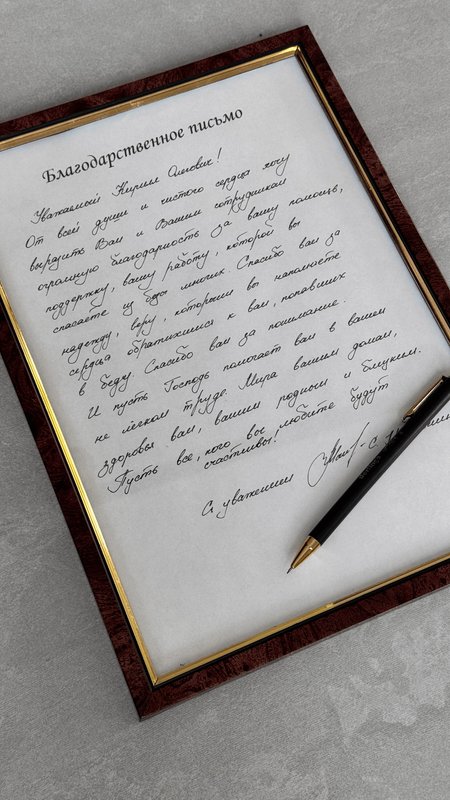 Благодарственное письмо
Уважаемый Кирилл Олегович!
От всей души и чистого сердца хочу
выразить Вам и Вашим сотрудникам
огромную благодарность за вашу помощь,
поддержку, вашу работу, которой вы
спасаете из беды многих. Спасибо вам за
надежду, веру, которыми вы наполняете
сердца обратившихся к вам, попавших
в беду. Спасибо вам за понимание.
И пусть Господь помогает вам в вашем
не лёгком труде. Мира вашим домам,
здоровья вам, вашим родным и близким.
Пусть все, кого вы любите будут
счастливы!
С уважением